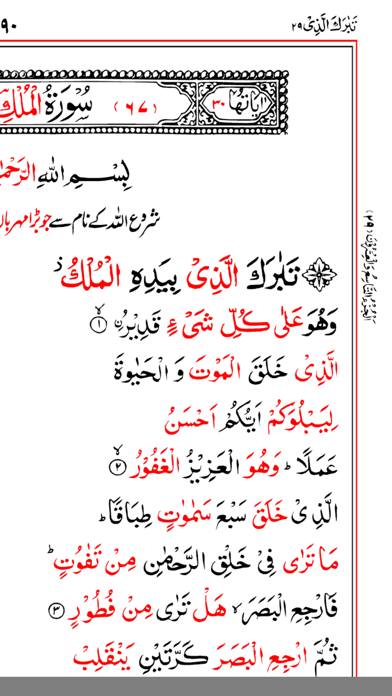 تَبٰرَكَ الَّذِیْ ۲۹
۹۰
اٰیَاتُهَا ۳۰
(۶۷) سُوْرَةُ الْمُلْكِ
بِسْمِ اللّٰهِ الرَّحْمٰ
شروع اللہ کے نام سے جو بڑا مہربان
تَبٰرَكَ الَّذِیْ بِیَدِهِ الْمُلْكُ ز
وَهُوَ عَلٰی كُلِّ شَیْءٍ قَدِیْرُ ۙ﴿۱﴾
الَّذِیْ خَلَقَ الْمَوْتَ وَ الْحَیٰوةَ
لِیَبْلُوَكُمْ اَیُّكُمْ اَحْسَنُ
عَمَلًا ؕ وَهُوَ الْعَزِیْزُ الْغَفُوْرُ ۙ﴿۲﴾
الَّذِیْ خَلَقَ سَبْعَ سَمٰوٰتٍ طِبَاقًا ؕ
مَا تَرٰی فِیْ خَلْقِ الرَّحْمٰنِ مِنْ تَفٰوُتٍ ؕ
فَارْجِعِ الْبَصَرَ ۙ هَلْ تَرٰی مِنْ فُطُوْرٍ ﴿۳﴾
ثُمَّ ارْجِعِ الْبَصَرَ كَرَّتَیْنِ یَنْقَلِبْ